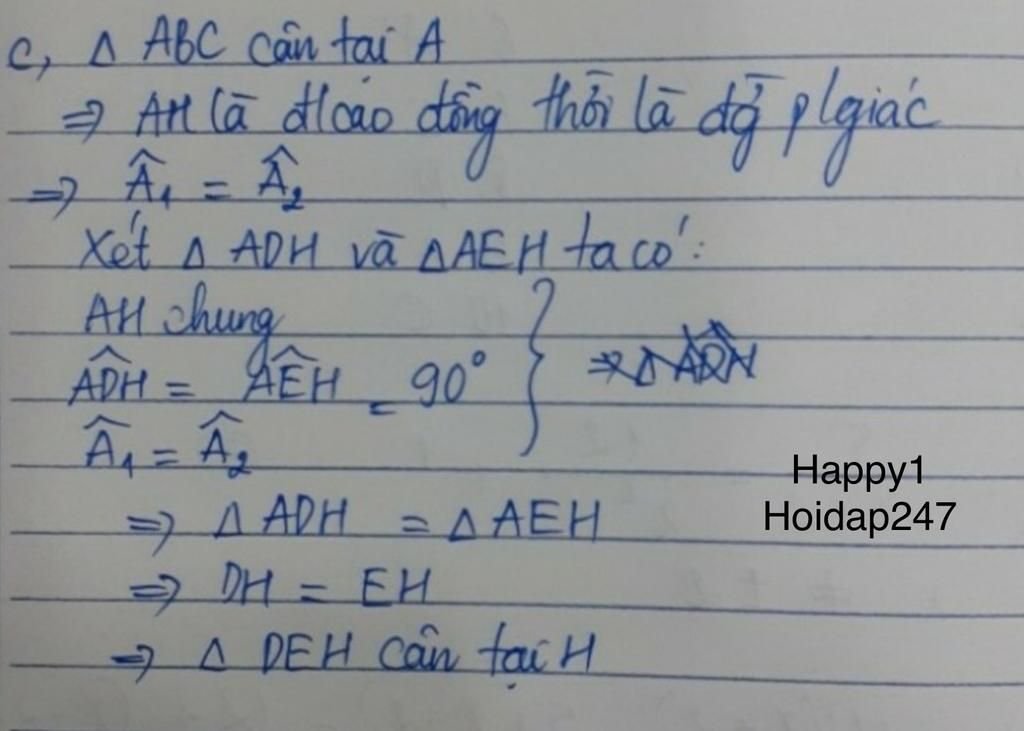 c, Δ ABC cân tại A
⇒ AH là đ/cao đồng thời là đg p/giác
⇒ Â₁ = Â₂
Xét Δ ADH và ΔAEH ta có:
AH chung
ADH = AEH = 90°
Â₁ = Â₂
⇒ Δ ADH = Δ AEH
⇒ DH = EH
⇒ Δ DEH cân tại H
Happy1
Hoidap247